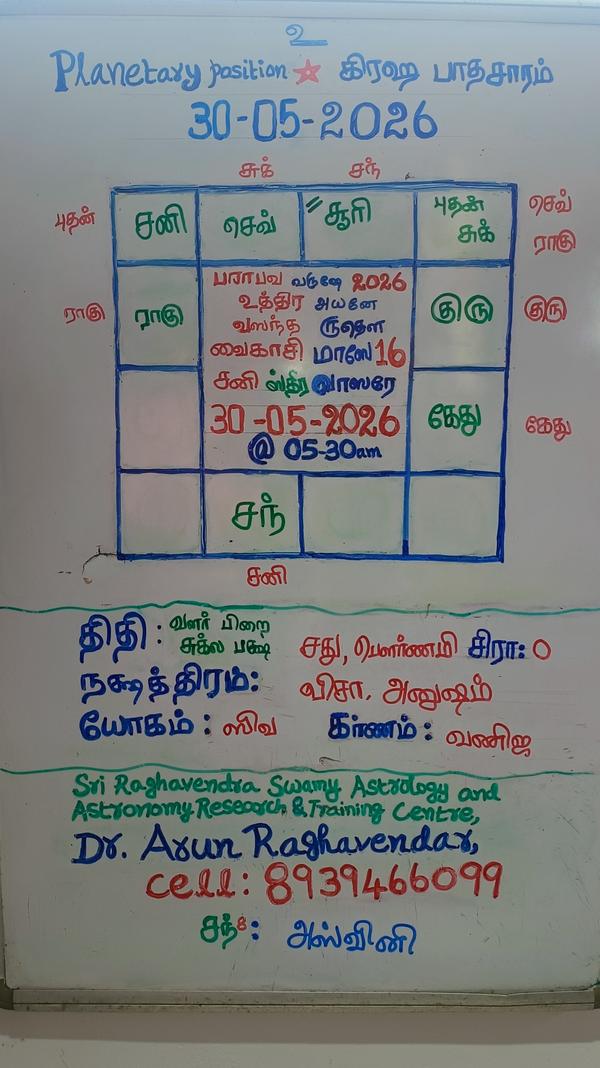 உ
Planetary position ☆ கிரஹ பாதசாரம்
30-05-2026
சுக் சந்
புதன் சனி செவ் "சூரி புதன் சுக் செவ் ராகு
பராபவ வருஷே 2026
உத்திர அயனே
ராகு ராகு குரு குரு
வஸந்த ருதௌ
வைகாசி மாஸே 16
சனி ஸ்திர வாஸரே
30-05-2026 கேது கேது
@ 05-30am
சந்
சனி
திதி: வளர் பிறை
சுக்ல பக்ஷ சது, பௌர்ணமி சிரா: 0
நக்ஷத்திரம்: விசா. அனுஷம்
யோகம்: ஸிவ கர்ணம்: வணிஜ
Sri Raghavendra Swamy Astrology and
Astronomy Research & Training Centre,
Dr. Arun Raghavendar,
cell: 8939466099
சந் 8: அஸ்வினி